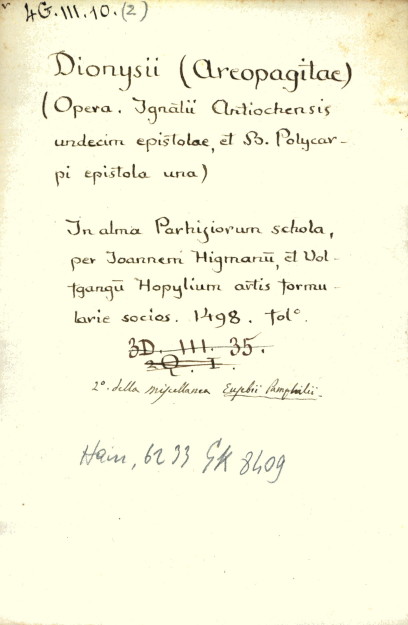 4G.III.10.(2)
Dionysii (Areopagitae)
(Opera. Ignãtii Antiochensis
undecim epistolae, et B. Polycar-
pi epistola una)
In alma Parhisiorum schola,
per Joannem Higmanũ, et Vol-
fgangũ Hopylium artis formu-
larie socios. 1498. folº.
3D. III. 35.
2Q. I.
2º. della miscellanea Eusebii Pamphilii.
Hain, 6233 GK 8409